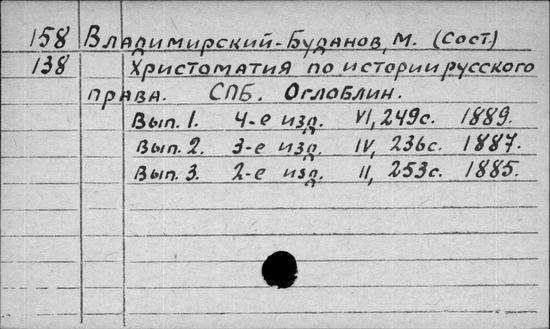 158 Владимирский-Буданов, М. (Сост)
138 Христоматия по истории русского
права. СПБ. Оглоблин.
Вып. 1. 4-е изд. VI, 249с. 1889.
Вып. 2. 3-е изд. IV, 236с. 1887.
Вып. 3. 2-е изд. II, 253с. 1885.